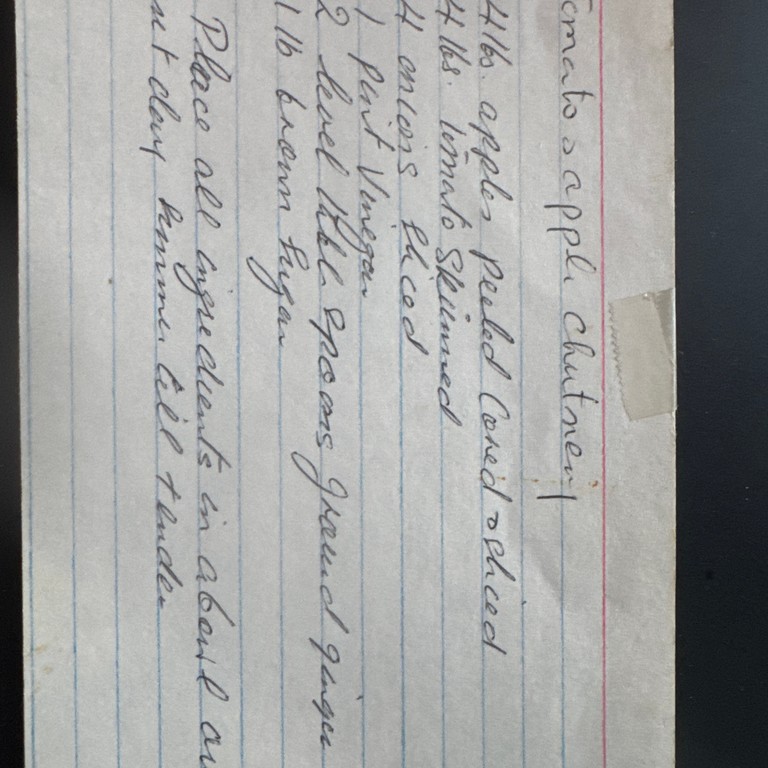 omato & apple chutney
4 lbs. apples peeled cored & sliced
4 lbs. tomato skinned
4 onions sliced
1 pint Vinegar
2 level tbl. spoons ground ginger
1 lb brown sugar
Place all ingredients in a bowl
day simmer till tender